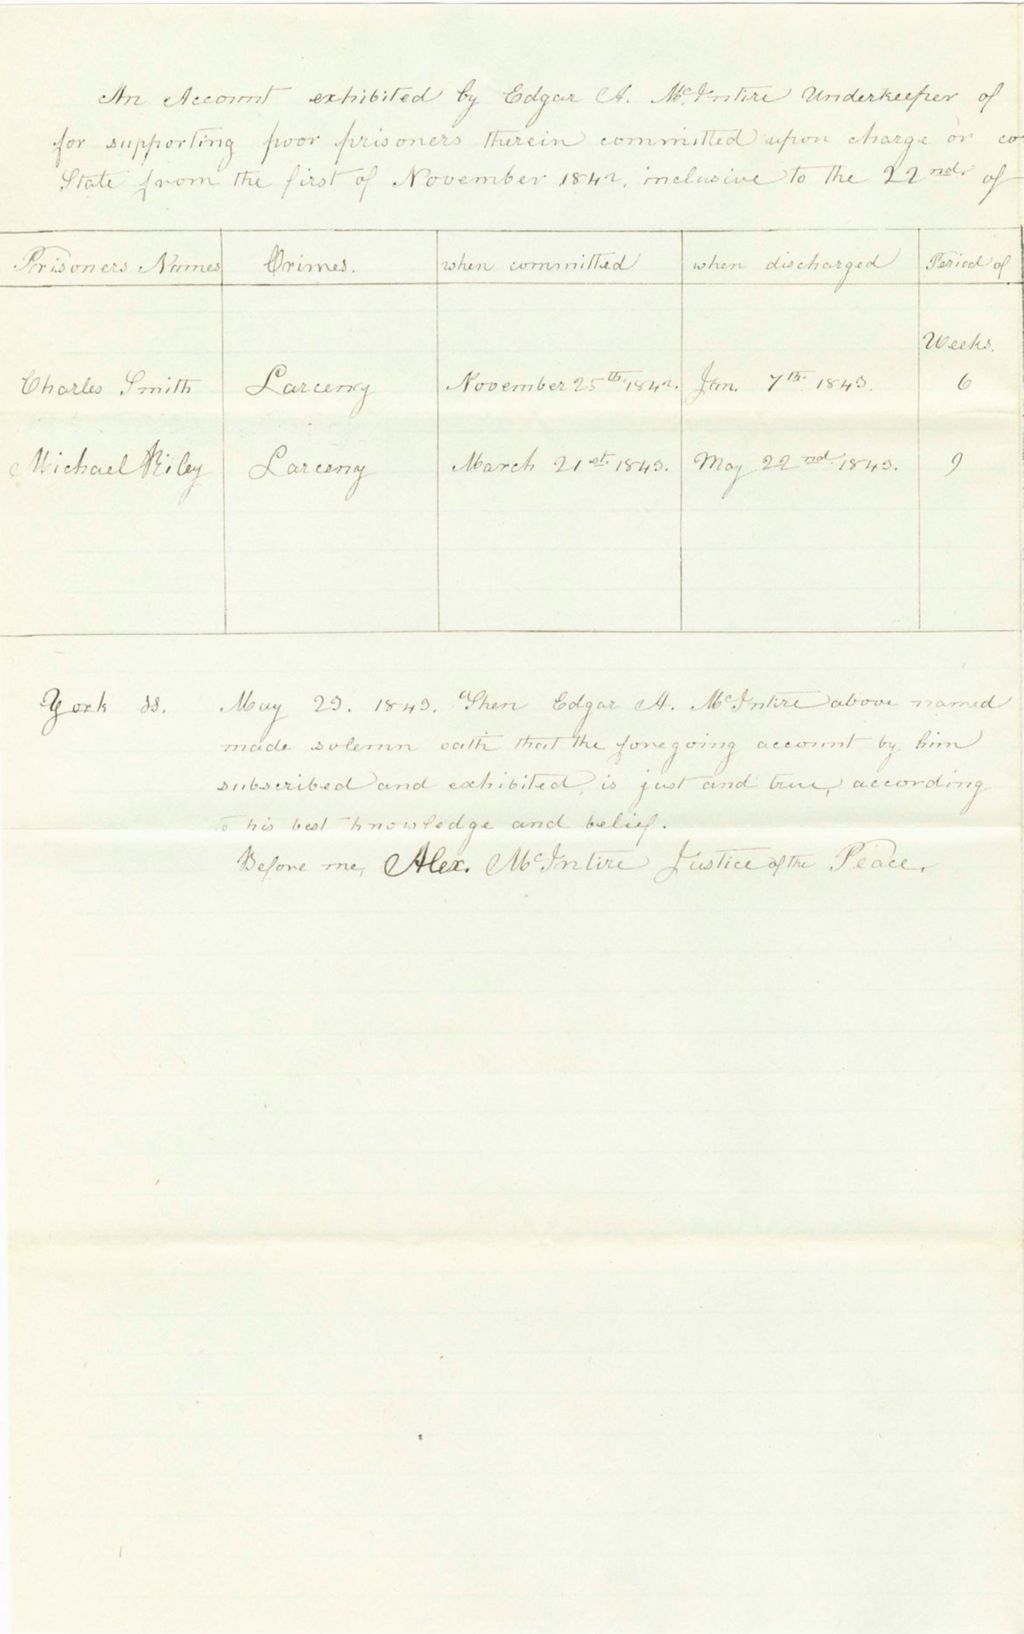 An Account exhibited by Edgar A. McIntire Underkeeper of
for supporting poor prisoners therein committed upon charge or co
State from the first of November 1842, inclusive to the 22nd. of
Prisoners Names Crimes. when committed when discharged Period of
Weeks.
Charles Smith Larceny November 25th. 1842. Jan. 7th. 1843. 6
Michael Riley Larceny March 21st. 1843. May 22nd. 1843. 9
York ss. May 23. 1843. Then Edgar A. McIntire above named
made solemn oath that the foregoing account by him
subscribed and exhibited, is just and true, according
to his best knowledge and belief.
Before me, Alex. McIntire Justice of the Peace.